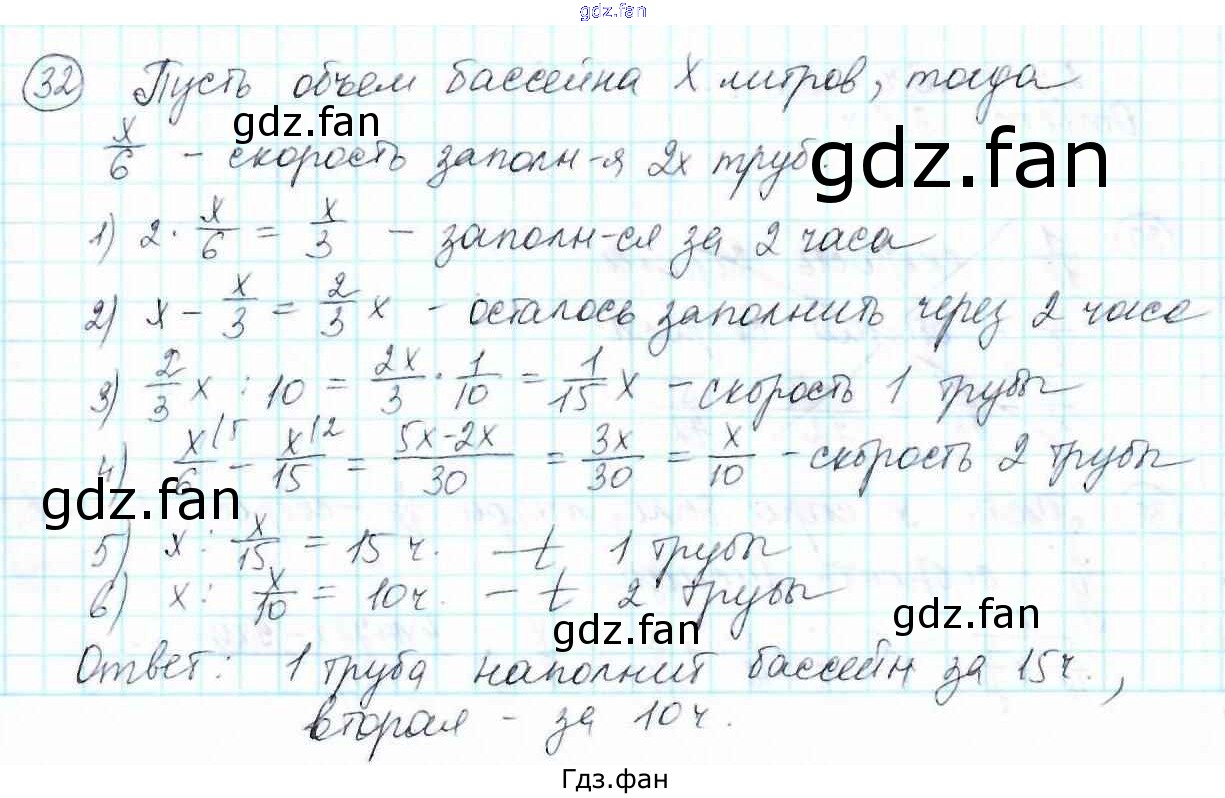 gdz.fan
32 Пусть объем бассейна X литров, тогда
gdz.fan
x/6 - скорость заполн-я 2х труб.
gdz.fan
1) 2 · x/6 = x/3 - заполн-ся за 2 часа
2) x - x/3 = 2/3 x - осталось заполнить через 2 часа
3) 2/3 x : 10 = 2x/3 · 1/10 = 1/15 x - скорость 1 трубы
4) x/6 (5 - x/15 (2 = 5x-2x/30 = 3x/30 = x/10 - скорость 2 трубы
gdz.fan
5) x : x/15 = 15 ч. - t 1 трубы
6) x : x/10 = 10ч. - t 2 трубы
gdz.fan
gdz.fan
Ответ: 1 труба наполнит бассейн за 15ч.,
вторая - за 10ч.
Гдз.фан